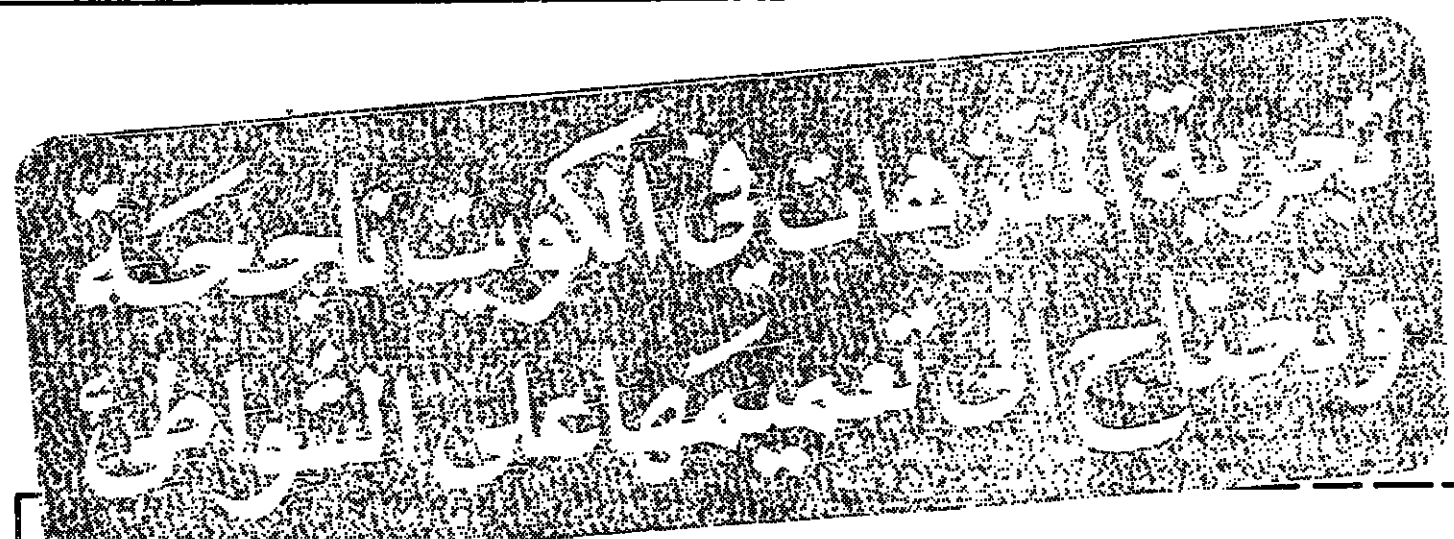 تجربة المنتزهات في الكويت ناجحة
وتحتاج الى تعميمها على الشواطئ